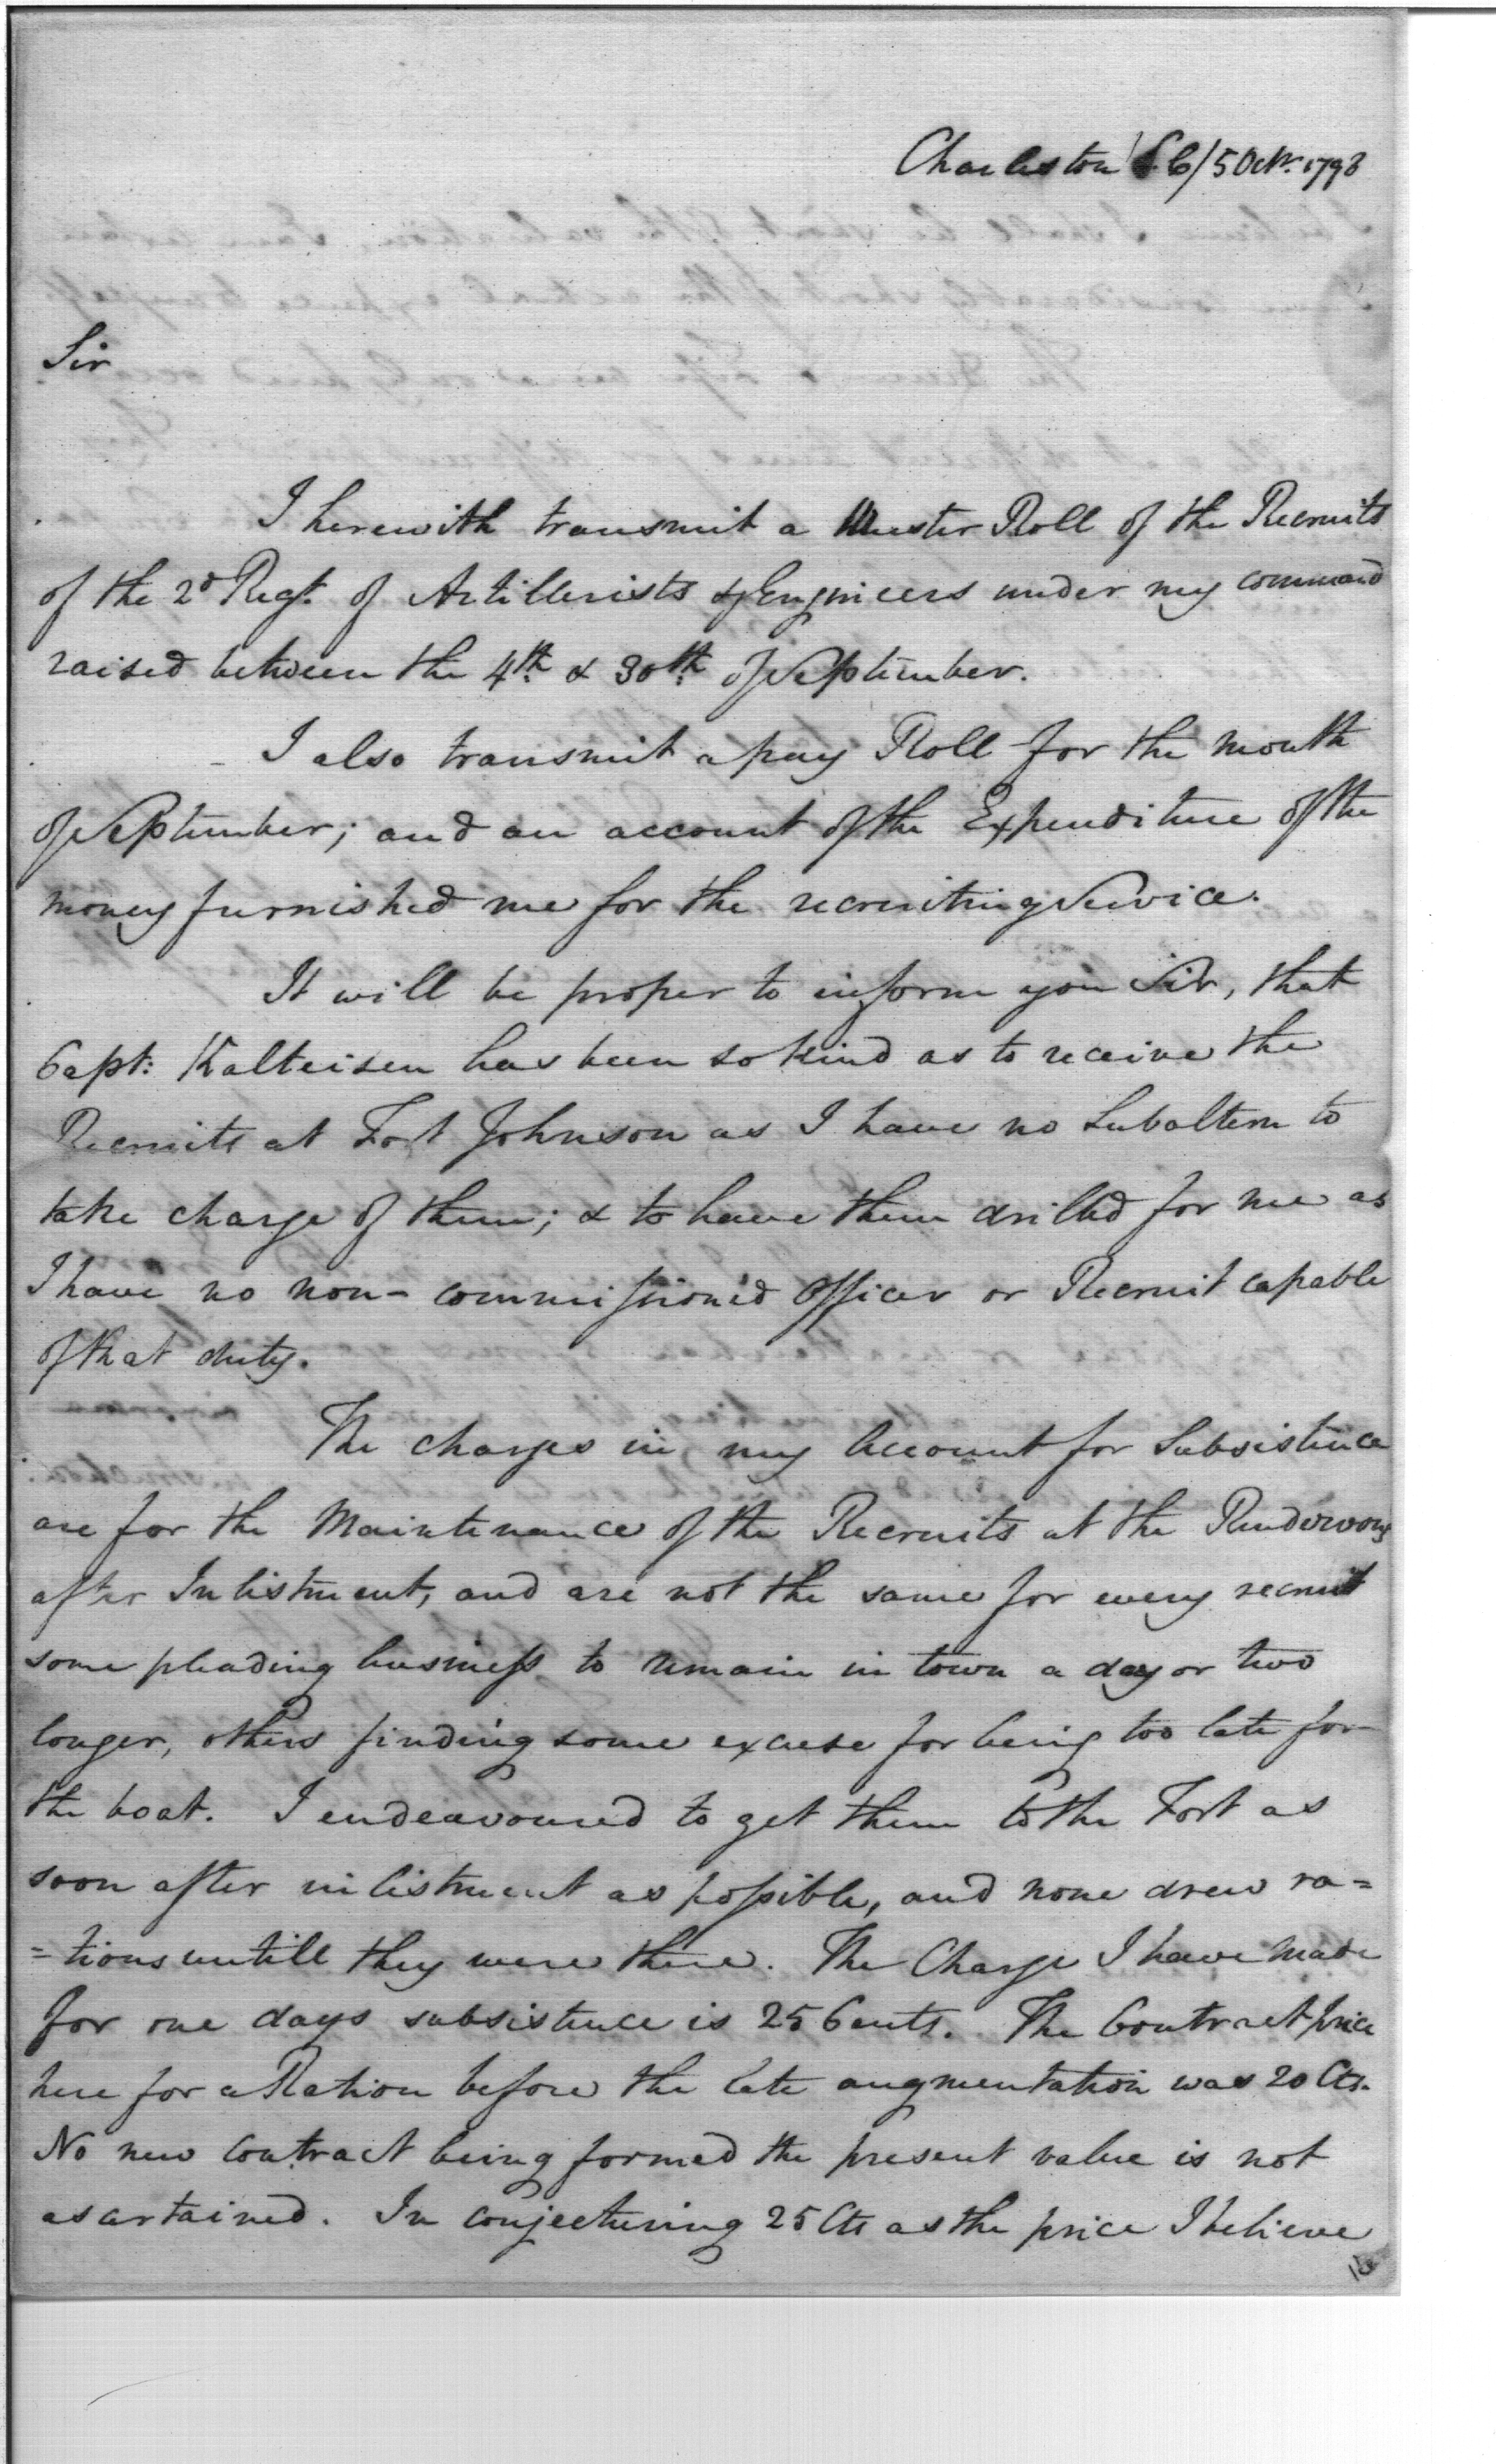 Charleston S C / 5 Octr. 1798
Sir
I herewith transmit a Muster Roll of the Recruits
of the 2d Regt. of Artillerists & Engineers under my command
raised between the 4th & 30th of September.
I also transmit a pay Roll for the month
of September; and an account of the Expenditure of the
money furnished me for the recruiting Service.
It will be proper to inform you Sir, that
Capt: Kalteisen has been so kind as to receive the
Recruits at Fort Johnson as I have no Subaltern to
take charge of them; & to have them drilled for me as
I have no non-commission'd Officer or Recruit capable
of that duty.
The charges in my Account for Subsistence
are for the Maintenance of the Recruits at the Rendervous
after Inlistment, and are not the same for every recruit
some pleading business to remain in town a day or two
longer, others finding some excuse for being too late for
the boat. I endeavoured to get them to the Fort as
soon after inlistment as possible, and none drew ra=
=tions untill they were there. The Charge I have made
for one days subsistence is 25 Cents. The Contract price
here for a Ration before the late augmentation was 20 Cts.
No new Contract being formed the present value is not
ascertained. In conjecturing 25 Cts as the price I believe